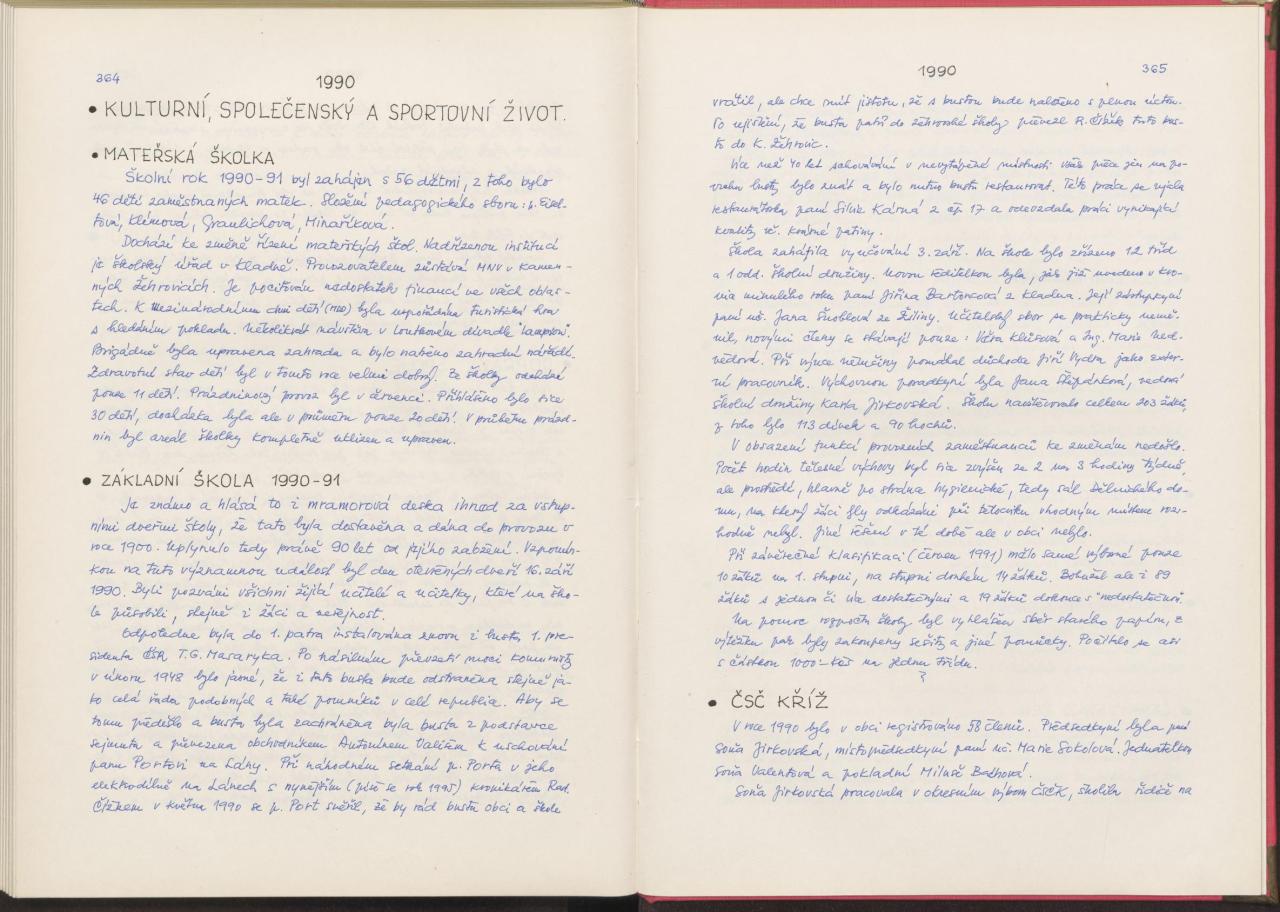 364
1990
• KULTURNÍ, SPOLEČENSKÝ A SPORTOVNÍ ŽIVOT.
• MATEŘSKÁ ŠKOLKA
Školní rok 1990-91 byl zahájen s 56 dětmi, z toho bylo
46 dětí zaměstnaných matek. Složení pedagogického sboru:
Klímová, Graulichová, Minaříková.
Dochází ke změně řízení mateřských škol. Nadřízenou institucí
je školský úřad v Kladně. Provozovatelem zůstává MNV v Kamen-
ných Žehrovicích. Je pociťován nedostatek financí ve všech oblas-
tech. K Mezinárodnímu dni dětí (MDD) byla uspořádána turistická hra
s hledáním pokladu. Několikrát návštěva v loutkovém divadle "Lampion".
Brigádně byla upravena zahrada a bylo nabyto zahradní nářadí.
Zdravotní stav dětí byl v tomto roce velmi dobrý. Ze školky odchází
pouze 11 dětí. Prázdninový provoz byl v červenci. Přihlášeno bylo sice
30 dětí, docházka byla ale v průměru pouze 20 dětí. V průběhu prázd-
nin byl areál školky kompletně uklizen a upraven.
• ZÁKLADNÍ ŠKOLA 1990-91
Je známo a hlásá to i mramorová deska ihned za vstup-
ními dveřmi školy, že tato byla dostavěna a dána do provozu v
roce 1900. Uplynulo tedy právě 90 let od jejího založení. Vzpomín-
kou na tuto významnou událost byl den otevřených dveří 16. září
1990. Byli pozváni všichni žijící učitelé a učitelky, které na ško-
le působili, stejně i žáci a veřejnost.
Odpoledne byla do 1. patra instalována znovu i busta 1. pre-
sidenta ČSR T.G. Masaryka. Po násilném převzetí moci komunisty
v únoru 1948 bylo jasné, že i tato busta bude odstraněna stejně ja-
ko celá řada podobných a také pomníků v celé republice. Aby se
tomu předešlo a busta byla zachráněna byla busta z podstavce
sejmuta a převezena obchodníkem Antonínem Valitem k uschování
panu Portovi na Lány. Při náhodném setkání p. Porta v jeho
elektrodílně na Lánech s nynějším (píše se rok 1995) kronikářem Rad.
Čížkem v květnu 1990 se p. Port svěřil, že by rád bustu obci a škole
1990
365
vrátil, ale chce mít jistotu, že s bustou bude naloženo s plnou úctou.
Po ujištění, že busta patří do žehrovské školy převezl R. Čížek tuto bus-
tu do K. Žehrovic.
Více než 40 let schovávání v nevytápěné místnosti však přece jen na po-
vrchu busty bylo znát a bylo nutno bustu restaurovat. Této práce se ujala
restaurátorka paní Silvie Kárná z čp. 17 a odevzdala práci vynikající
kvality vč. konečné patiny.
Škola zahájila vyučování 3. září. Na škole bylo zřízeno 12 tříd
a 1 odd. školní družiny. Novou ředitelkou byla, jak již uvedeno v kro-
nice minulého roku paní Jiřina Bartoncová z Kladna. Její zástupkyní
paní uč. Jana Šnoblová ze Žiliny. Učitelský sbor se prakticky nemě-
nil, novými členy se stávají pouze: Věra Klusová a Ing. Marie Ned-
vědová. Při výuce němčiny pomáhal důchodce Jiří Vydra jako exter-
ní pracovník. Výchovnou poradkyní byla Jana Štěpánková, vedoucí
školní družiny Karla Jirkovská. Školu navštěvovalo celkem 203 žáků,
z toho bylo 113 dívek a 90 hochů.
V obsazení funkcí provozních zaměstnanců ke změnám nedošlo.
Počet hodin tělesné výchovy byl sice zvýšen ze 2 na 3 hodiny týdně,
ale prostředí, hlavně po stránce hygienické, tedy sál Dělnického do-
mu, na který žáci byly odkázáni při tělocviku vhodným místem roz-
hodně nebyl. Jiné řešení v té době ale v obci nebylo.
Při závěrečné klasifikaci (červen 1991) mělo samé výborné pouze
10 žáků na 1. stupni, na stupni druhém 14 žáků. Bohužel ale i 89
žáků s jednou či více dostatečnými a 19 žáků dokonce s "nedostatečnou".
Na pomoc rozpočtu školy byl vyhlášen sběr starého papíru, z
výtěžku pak byly zakoupeny sešity a jiné pomůcky. Počítalo se asi
s částkou 1000.- Kčs na jednu třídu.
• ČSČ KŘÍŽ
V roce 1990 bylo v obci registrováno 58 členů. Předsedkyní byla paní
Soňa Jirkovská, místopředsedkyní paní uč. Marie Sokolová. Jednatelkou
Soňa Valentová a pokladní Miluše Bachová.
Soňa Jirkovská pracovala v okresním výboru ČSČK, školila řidiče na